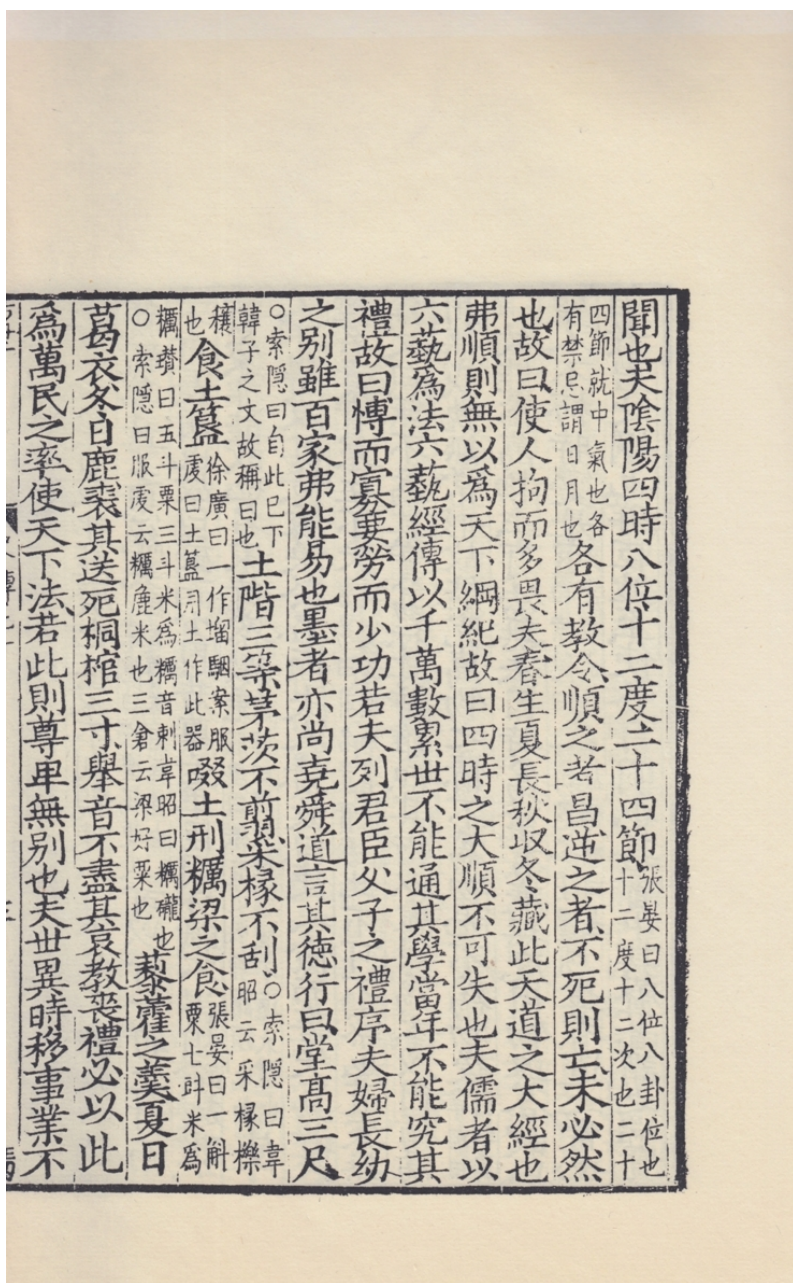 聞也夫陰陽四時八位十二度二十四節張晏曰八位八卦位也十二度十二次也二十
四節就中氣也各有禁忌謂日月也各有教令順之者昌逆之者不死則亡未必然
也故曰使人拘而多畏夫春生夏長秋収冬藏此天道之大經也
弗順則無以爲天下綱紀故曰四時之大順不可失也夫儒者以
六藝爲法六藝經傳以千萬數累世不能通其學當年不能究其
禮故曰博而寡要勞而少功若夫列君臣父子之禮序夫婦長幼
之别雖百家弗能易也墨者亦尚堯舜道言其德行曰堂髙三尺
○索隠曰自此已下韓子之文故稱曰也土階三等茅茨不翦采椽不刮○索隠曰韋昭云采椽櫟
穣也食土簋徐廣曰一作塯駰案服䖍曰土簋用土作此器啜土刑糲梁之食張晏曰一斛粟七㪷米爲
糲瓉曰五斗粟三斗米爲糲音剌韋昭曰糲䃯也○索隠曰服䖍云糲麄米也三倉云梁好粟也藜藿之羹夏日
葛衣冬日鹿裘其送死桐棺三寸舉音不盡其哀教喪禮必以此
爲萬民之率使天下法若此則尊卑無别也夫世異時移事業不